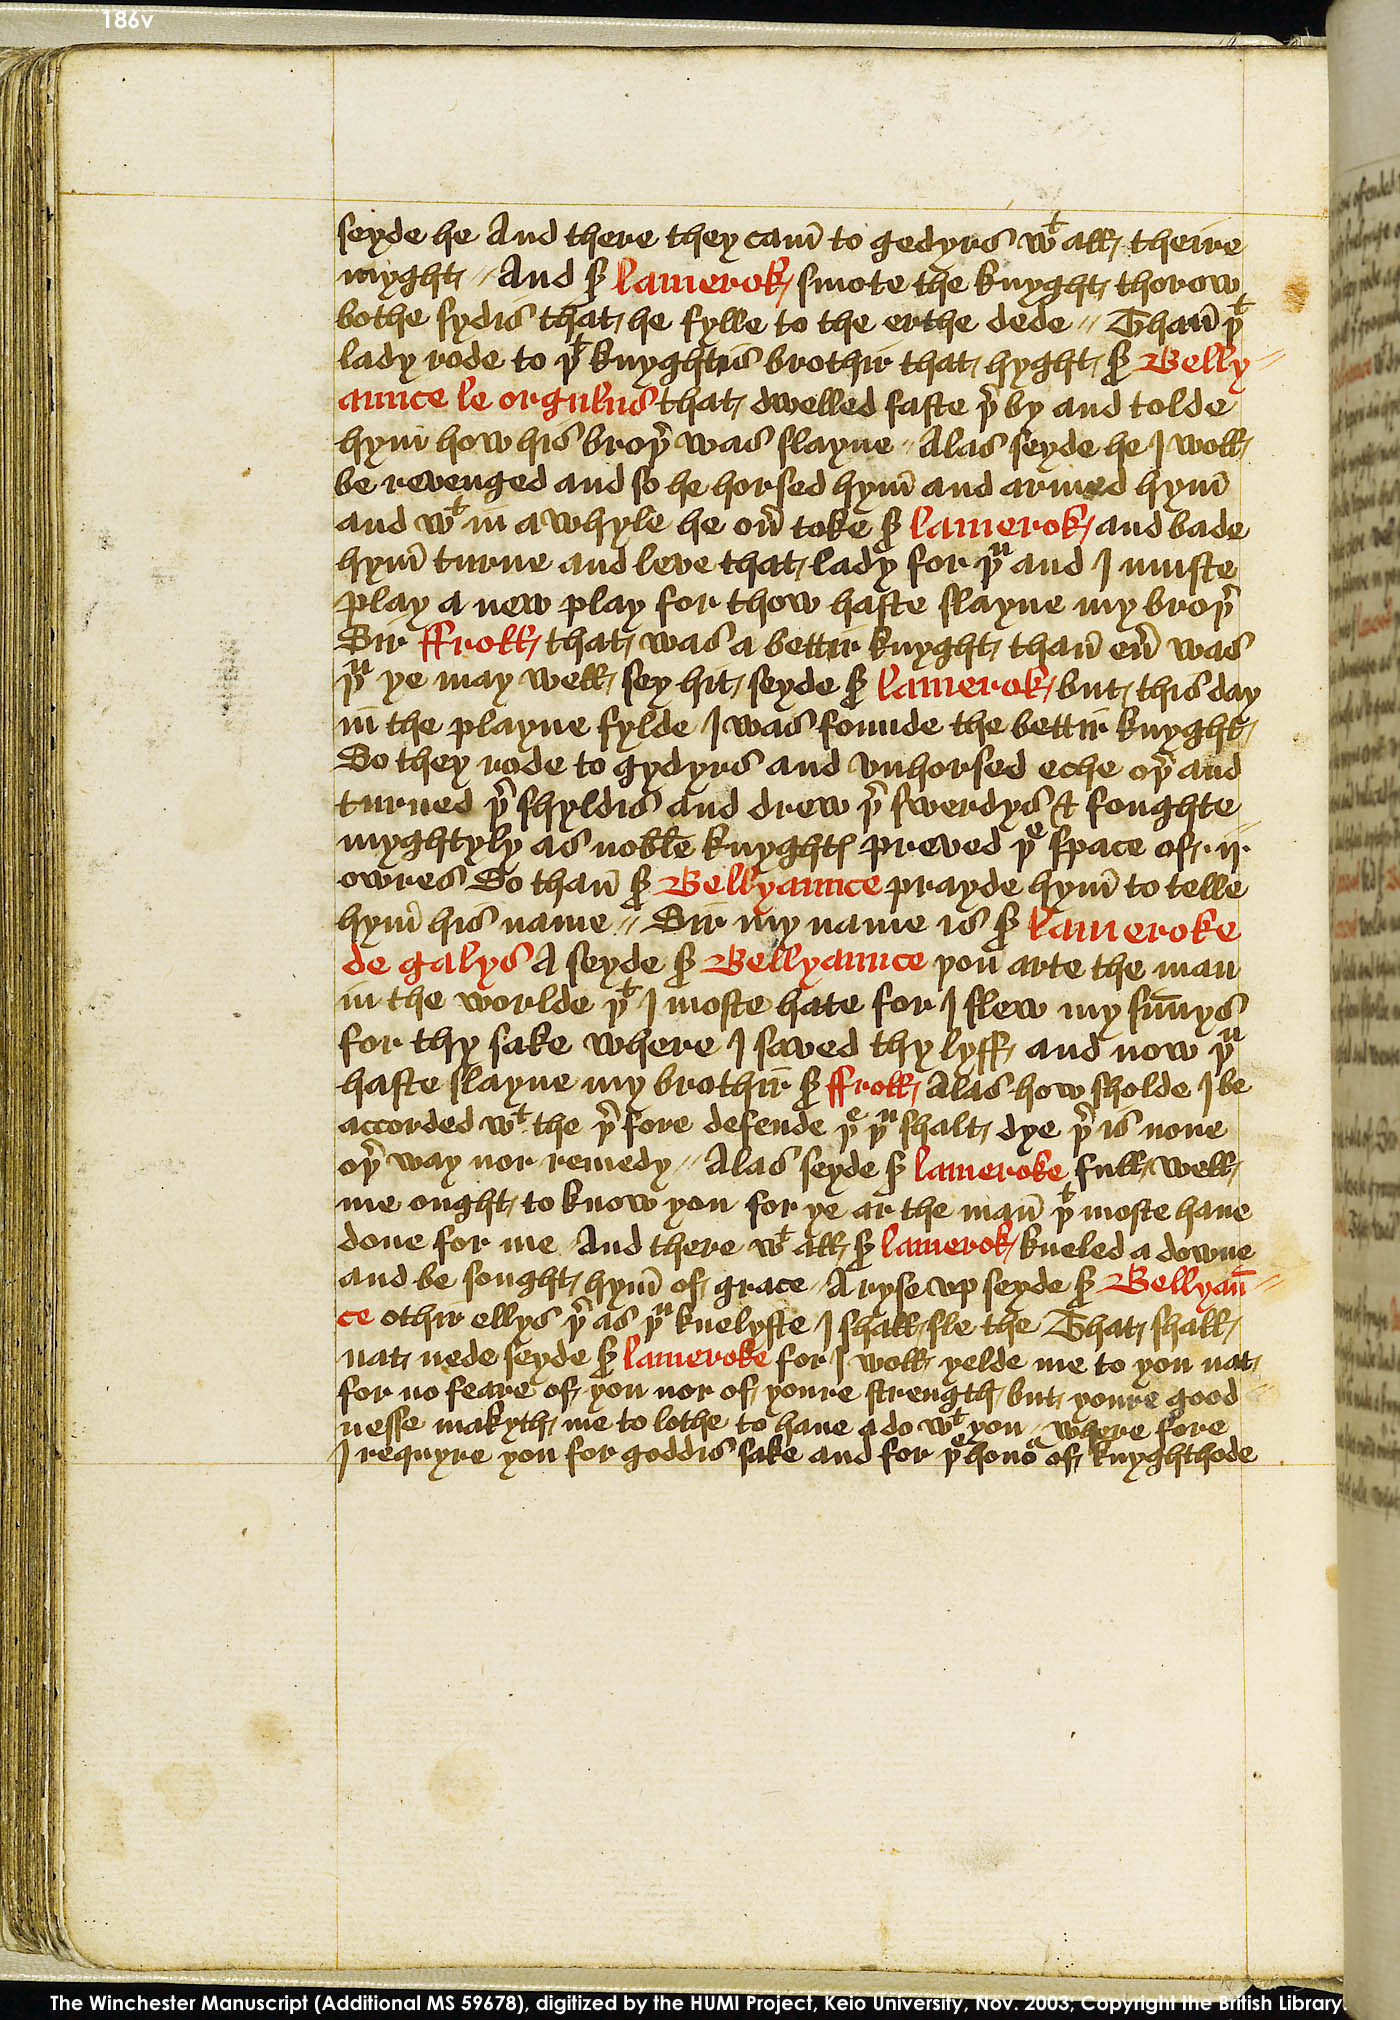 186v
seyde he And there they cam̄ to gedyrs wᵗ all theire
myght // And sˀ lamerok smote the knyght thorow
bothe sydis that he fylle to the erthe dede // Than̄ þᵗ
lady rode to þᵗ knyghtis brothir that hyght sˀ Belly⸗
aunce le orgulus that dwelled faste þˀ by and tolde
hym how his broþˀ was slayne // Alas seyde he I woll
be revenged and so he horsed hym̄ and armed hym̄
and wᵗ in a whyle he ouˀ toke sˀ lamerok and bade
hym̄ turne and leve that lady for þᵘ and I muste
play a new play for thow haste slayne my broþˀ
Sir ffroll that was a bettir knyght than̄ euˀ was
þᵘ ye may well sey hit seyde sˀ lamerok but this day
in the playne fylde I was founde the bettir knyght
So they rode to gydyrs and vnhorsed eche oþˀ and
turned þˀ shyldis and drew þˀ swerdys & foughte
myghtyly as noble knyghtꝭ preved þᵉ space of .ij.
owres So than̄ sˀ Bellyaunce prayde hym̄ to telle
hym̄ his name // Sir my name is sˀ lameroke
de galys A seyde sˀ Bellyaunce þou arte the man
in the worlde þᵗ I moste hate for I slew my sun̄ys
for thy sake where I saved thy lyff and now þᵘ
haste slayne my brothir sˀ ffroll Alas how sholde I be
accorded wᵗ the þˀ fore defende þᵉ þᵘ shalt dye þˀ is none
oþˀ way nor remedy // Alas seyde sˀ lameroke full well
me ought to know you for ye ar the man̄ þᵗ moste haue
done for me And there wᵗ all sˀ lamerok kneled a downe
and be sought hym̄ of grace Aryse vp seyde sˀ Bellyan̄⸗
ce othir ellys þˀ as þᵘ knelyste I shall sle the That shall
nat nede seyde sˀ lameroke for I woll yelde me to you nat
for no feare of you nor of youre strength but youre good
nesse makyth me to lothe to haue ado wᵗ you where fore
I requyre you for goddis sake and for þᵉ honoˀ of knyghthode
The Winchester Manuscript (Additional MS 59678), digitized by the HUMI Project, Keio University, Nov. 2003; Copyright the British Library.